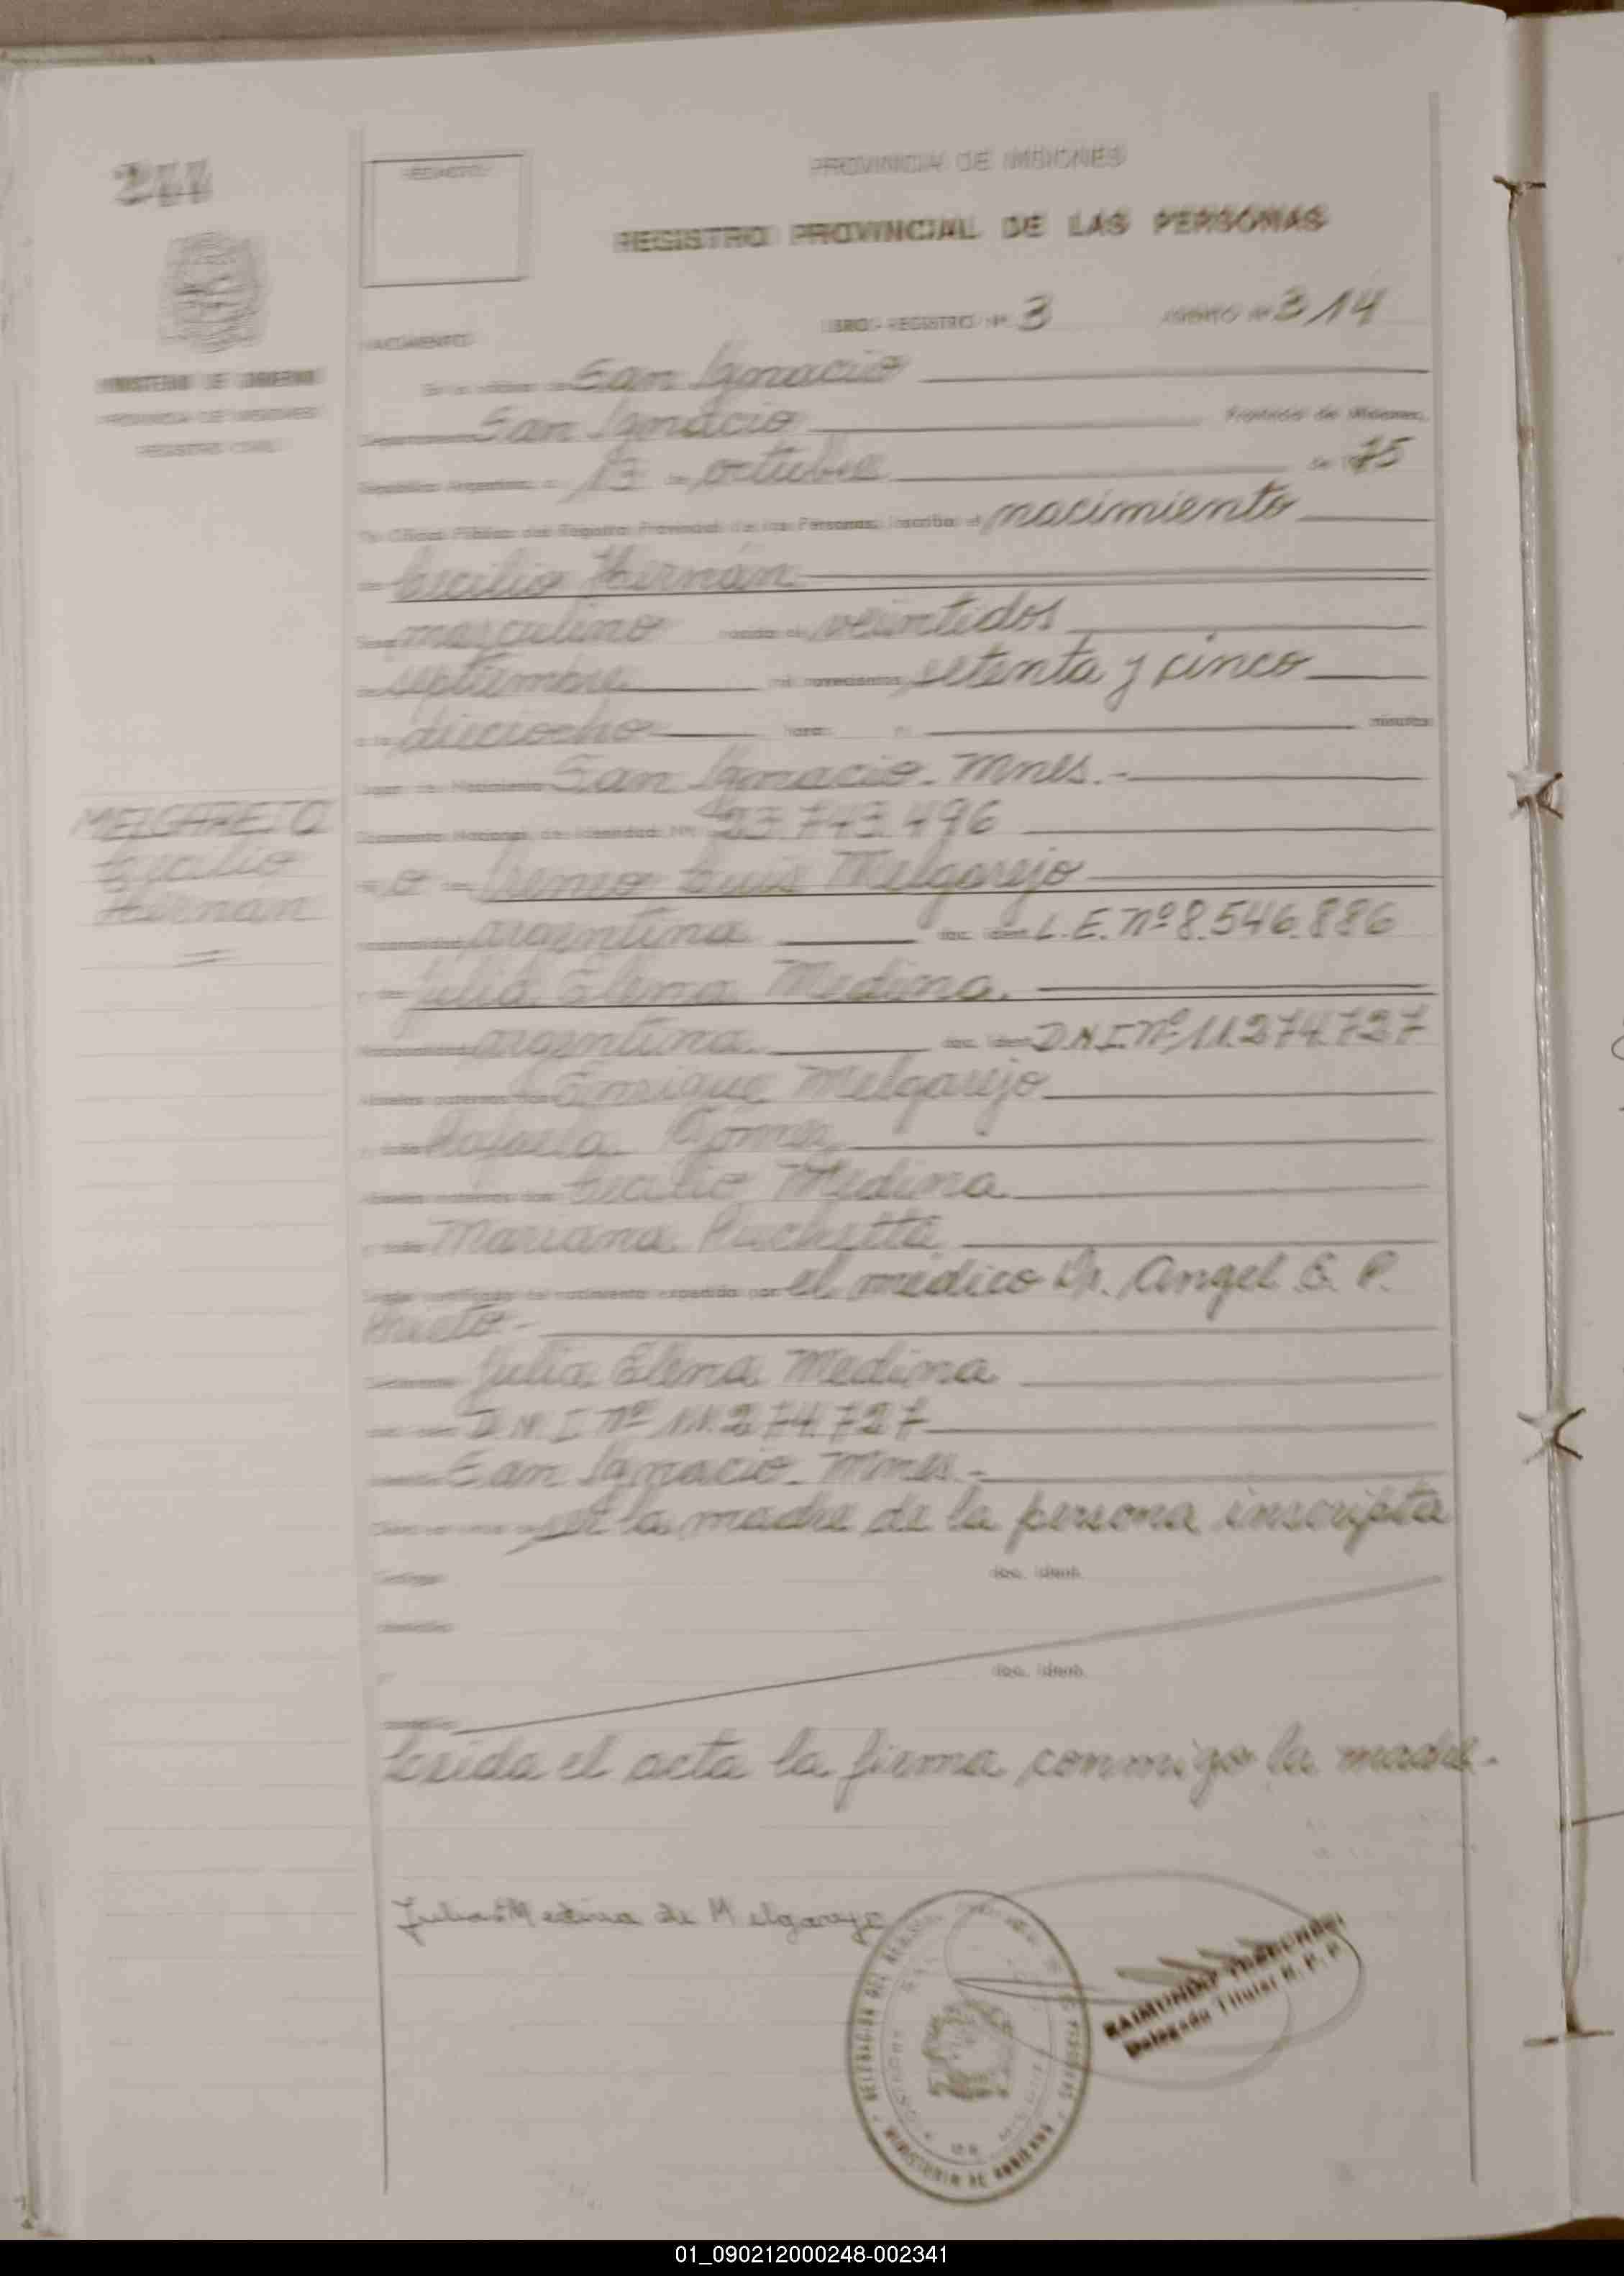 PROVINCIA DE MISIONES
REGISTRO PROVINCIAL DE LAS PERSONAS
LIBRO - REGISTRO Nº 3 ASIENTO Nº 314
NACIMIENTO
MINISTERIO DE GOBIERNO
PROVINCIA DE MISIONES
REGISTRO CIVIL
San Ignacio
Departamento San Ignacio Provincia de Misiones,
República Argentina, a 13 de octubre de 75
Yo Oficial Público del Registro Provincial de las Personas, inscribo el nacimiento
de Cecilio Hernán
Sexo masculino nacido el veintidos
de septiembre mil novecientos setenta y cinco
a las dieciocho horas y minutos
Lugar de Nacimiento San Ignacio - Mnes.-
Documento Nacional de Identidad Nº 23.743.496
MELGAREJO
Cecilio
Hernan
Luis Melgarejo
Nacionalidad argentina doc. ident. L.E. Nº 8.546.886
y de Julia Elena Medina.
Nacionalidad argentina. doc. ident. D.N.I. Nº 11.274.727
Abuelos paternos Don Enrique Melgarejo
y doña Rafaela Gómez
Abuelos maternos Don Cecilio Medina
y doña Mariana
Según certificado de nacimiento expedido por el médico Dr. Angel E. P.
Prieto-
Declarante Julia Elena Medina
doc. ident. D.N.I. Nº 11.274.727
San Ignacio - Mnes.-
ser la madre de la persona inscripta
Testigo doc. ident.
doc. ident.
Leida el acta la firma conmigo la madre.
Julia E Medina de Melgarejo
MINISTERIO DE GOBIERNO
RAIMUNDO
Delegado Titular R. P. P.
01_090212000248-002341